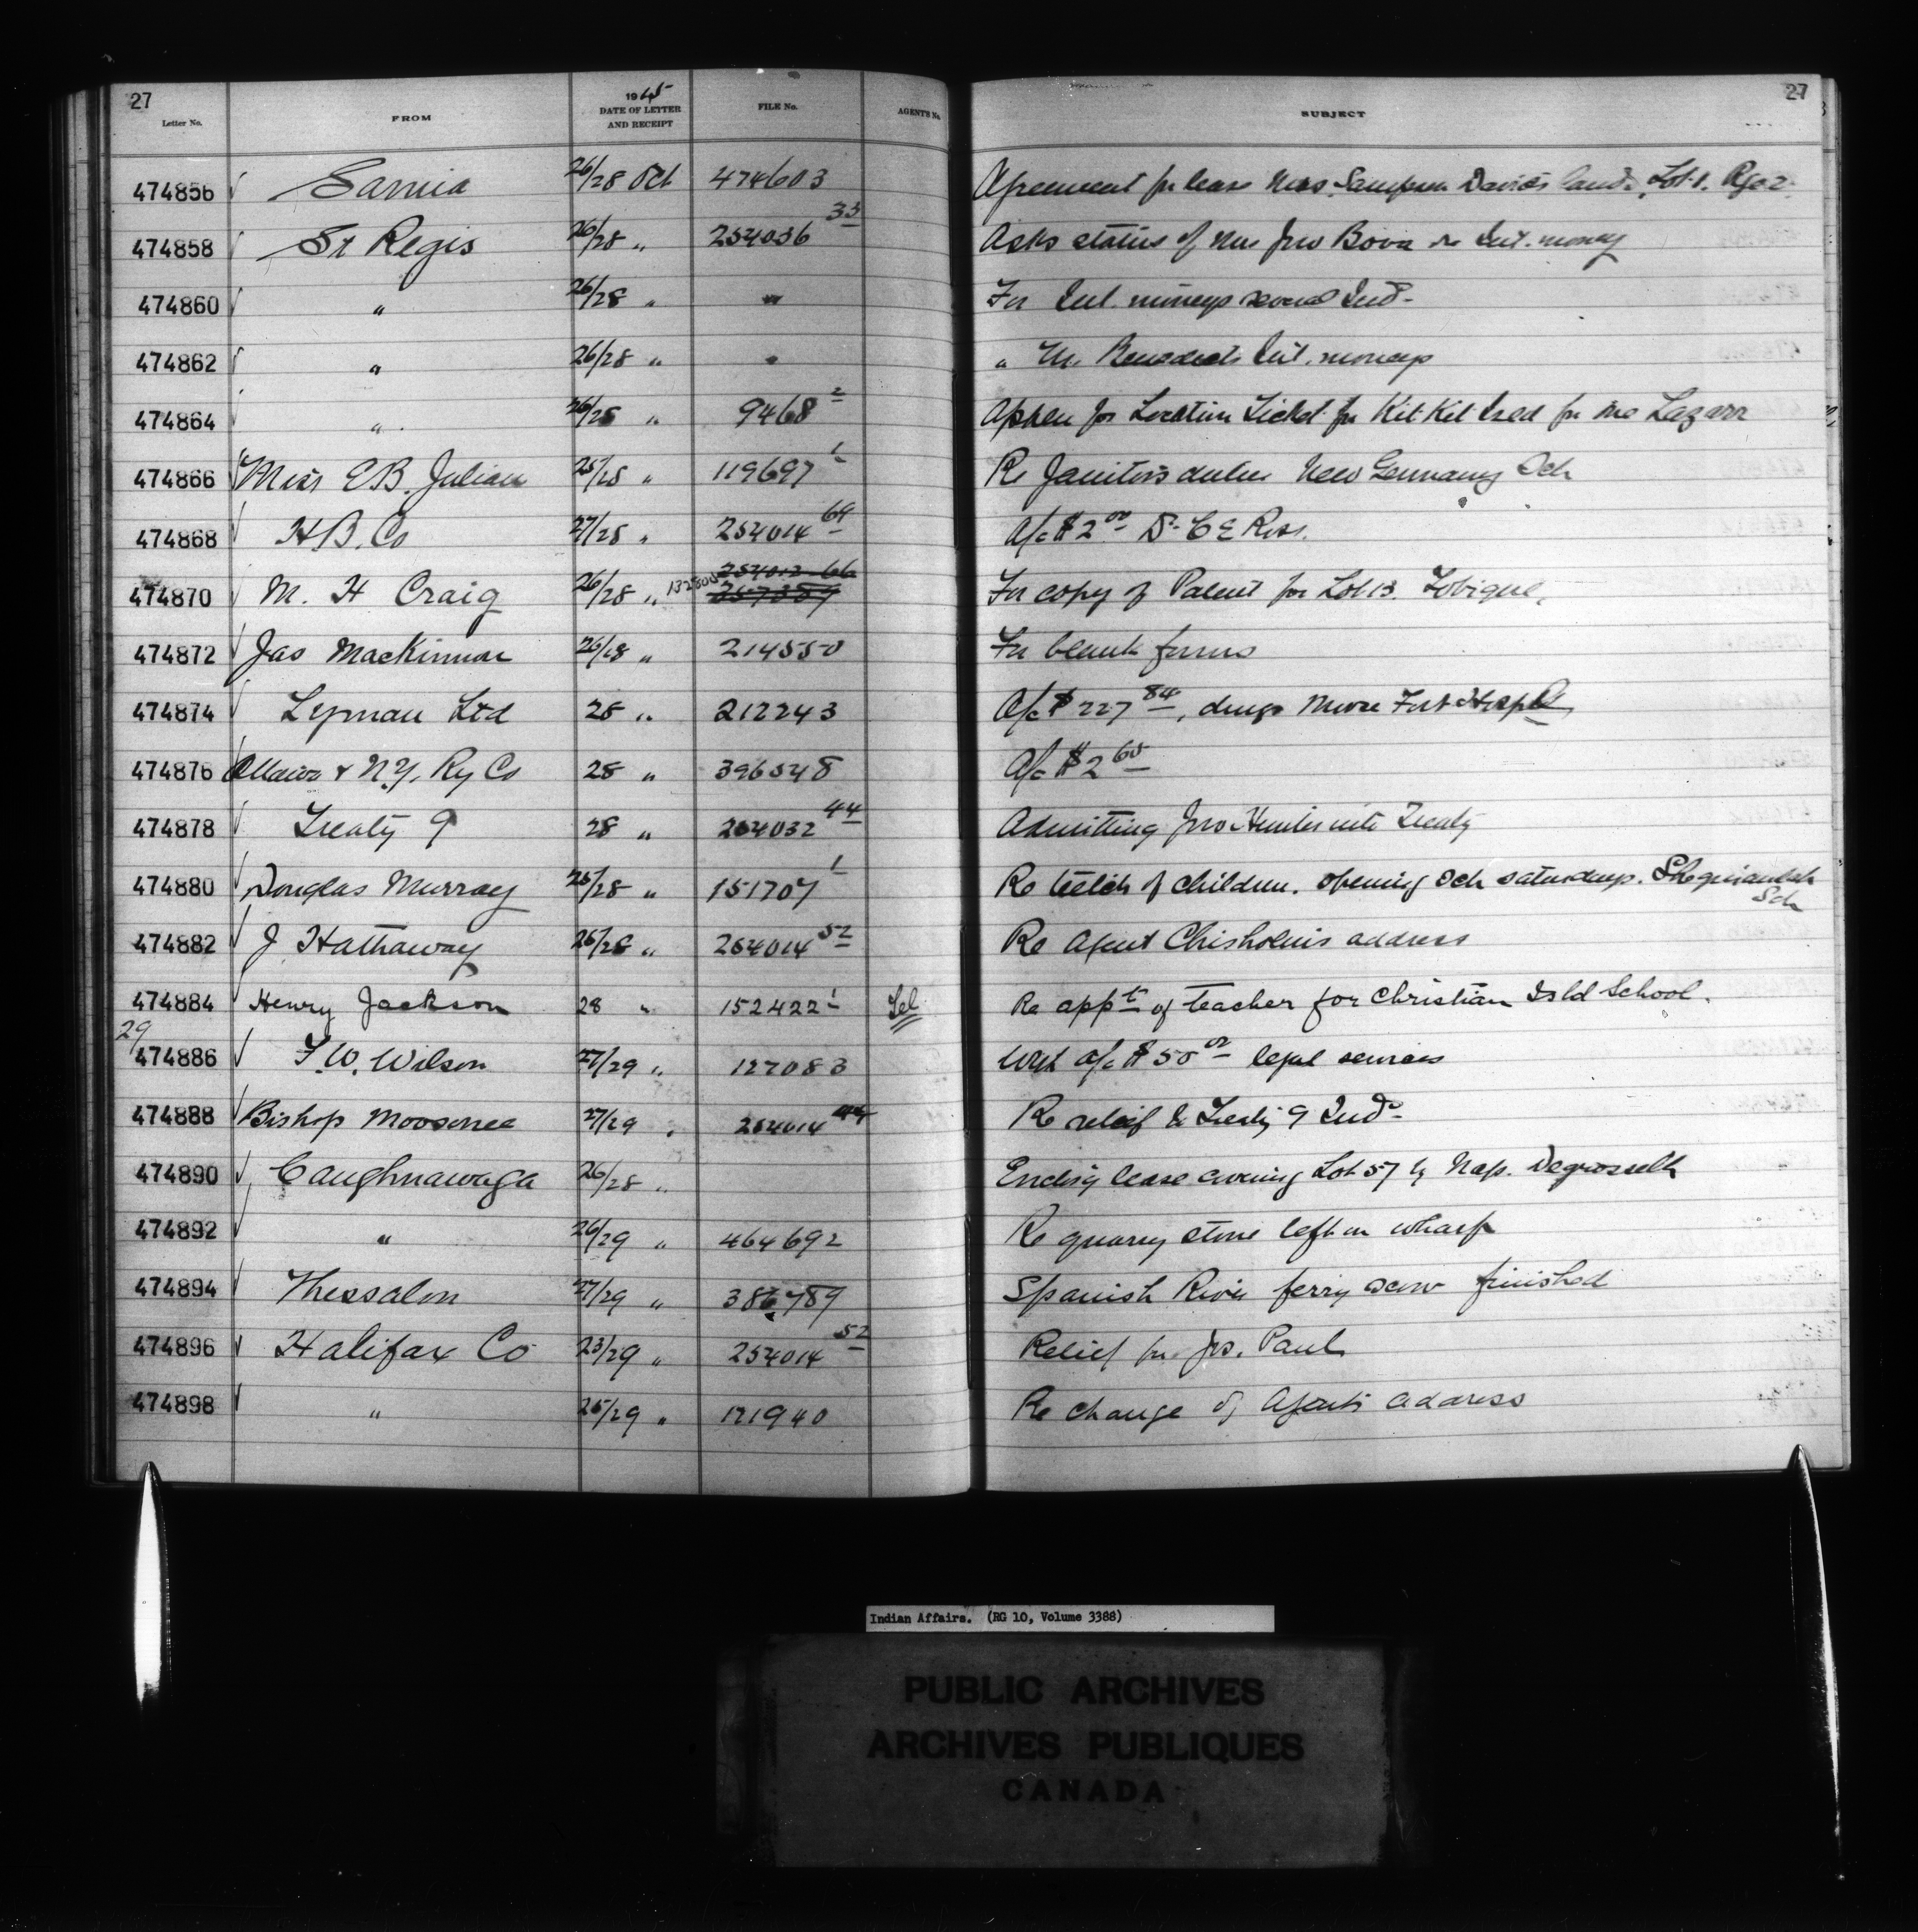 27
27
Letter No. FROM 1915 DATE OF LETTER AND RECEIPT FILE No. AGENT'S No. SUBJECT
474856 Sarnia 26/28 Oct 474603 Agreement for lease Mrs. Sampson Davids land, Lot 1. Rge 2.
474858 St Regis 26/28 " 254036 33 Asks status of Mrs Jno Bova re Int. money
474860 " 26/28 " " For Int. moneys several Inds
474862 " 26/28 " " " M. Benedicts Int. moneys
474864 " 26/28 " 9468 2 Appln for Location Ticket for Kit Kit Ized for Lazarr
474866 Miss E B. Julian 25/28 " 119697 1 Re Janitors duties New Germany Sch
474868 H B. Co 27/28 " 254014 69 A/c $2 00 Dr C E Ross.
474870 M. H Craig 26/28 " 132800 254012 66 257389 For copy of Patent for Lot 13. Tobique.
474872 Jas MacKinnon 26/28 " 214550 For blank forms
474874 Lyman Ltd 28 " 212243 A/c $227 84, drugs Moose Fort Hospl
474876 Ottawa & N.Y. Ry Co 28 " 396548 A/c $2 60
474878 Treaty 9 28 " 254032 44 Admitting Jno Hunter into Treaty
474880 Douglas Murray 25/28 " 151707 1 Re health of children. opening Sch saturdays. Sheguiandah
Sch
474882 J. Hathaway 26/28 " 254014 52 Re Agent Chisholm's address
474884 Henry Jackson 28 " 152422 1 Tel Re appt of teacher for Christian Isld School.
29
474886 F. W. Wilson 27/29 " 127083 a/c $50 00 legal services
474888 Bishop Moosonee 27/29 " 254014 44 Re relief to Treaty 9 Inds
474890 Caughnawaga 26/28 " Enclosg lease covering Lot 57 by Nap. Degrosselle
474892 " 26/29 " 464692 Re quarry stone left on wharf
474894 Thessalon 27/29 " 386789 Spanish River ferry scow finished
474896 Halifax Co 23/29 " 254014 52 Relief for Jos. Paul
474898 " 25/29 " 121940 Re change of Agents address
Indian Affairs. (RG 10, Volume 3388)
PUBLIC ARCHIVES
ARCHIVES PUBLIQUES
CANADA